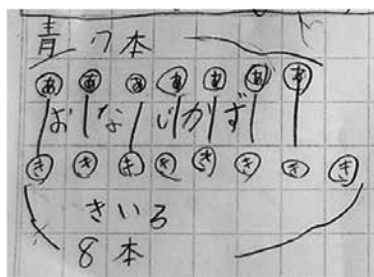 青7本
あ あ あ あ あ あ あ
おなじかず
き き き き き き き き
きいろ
8本